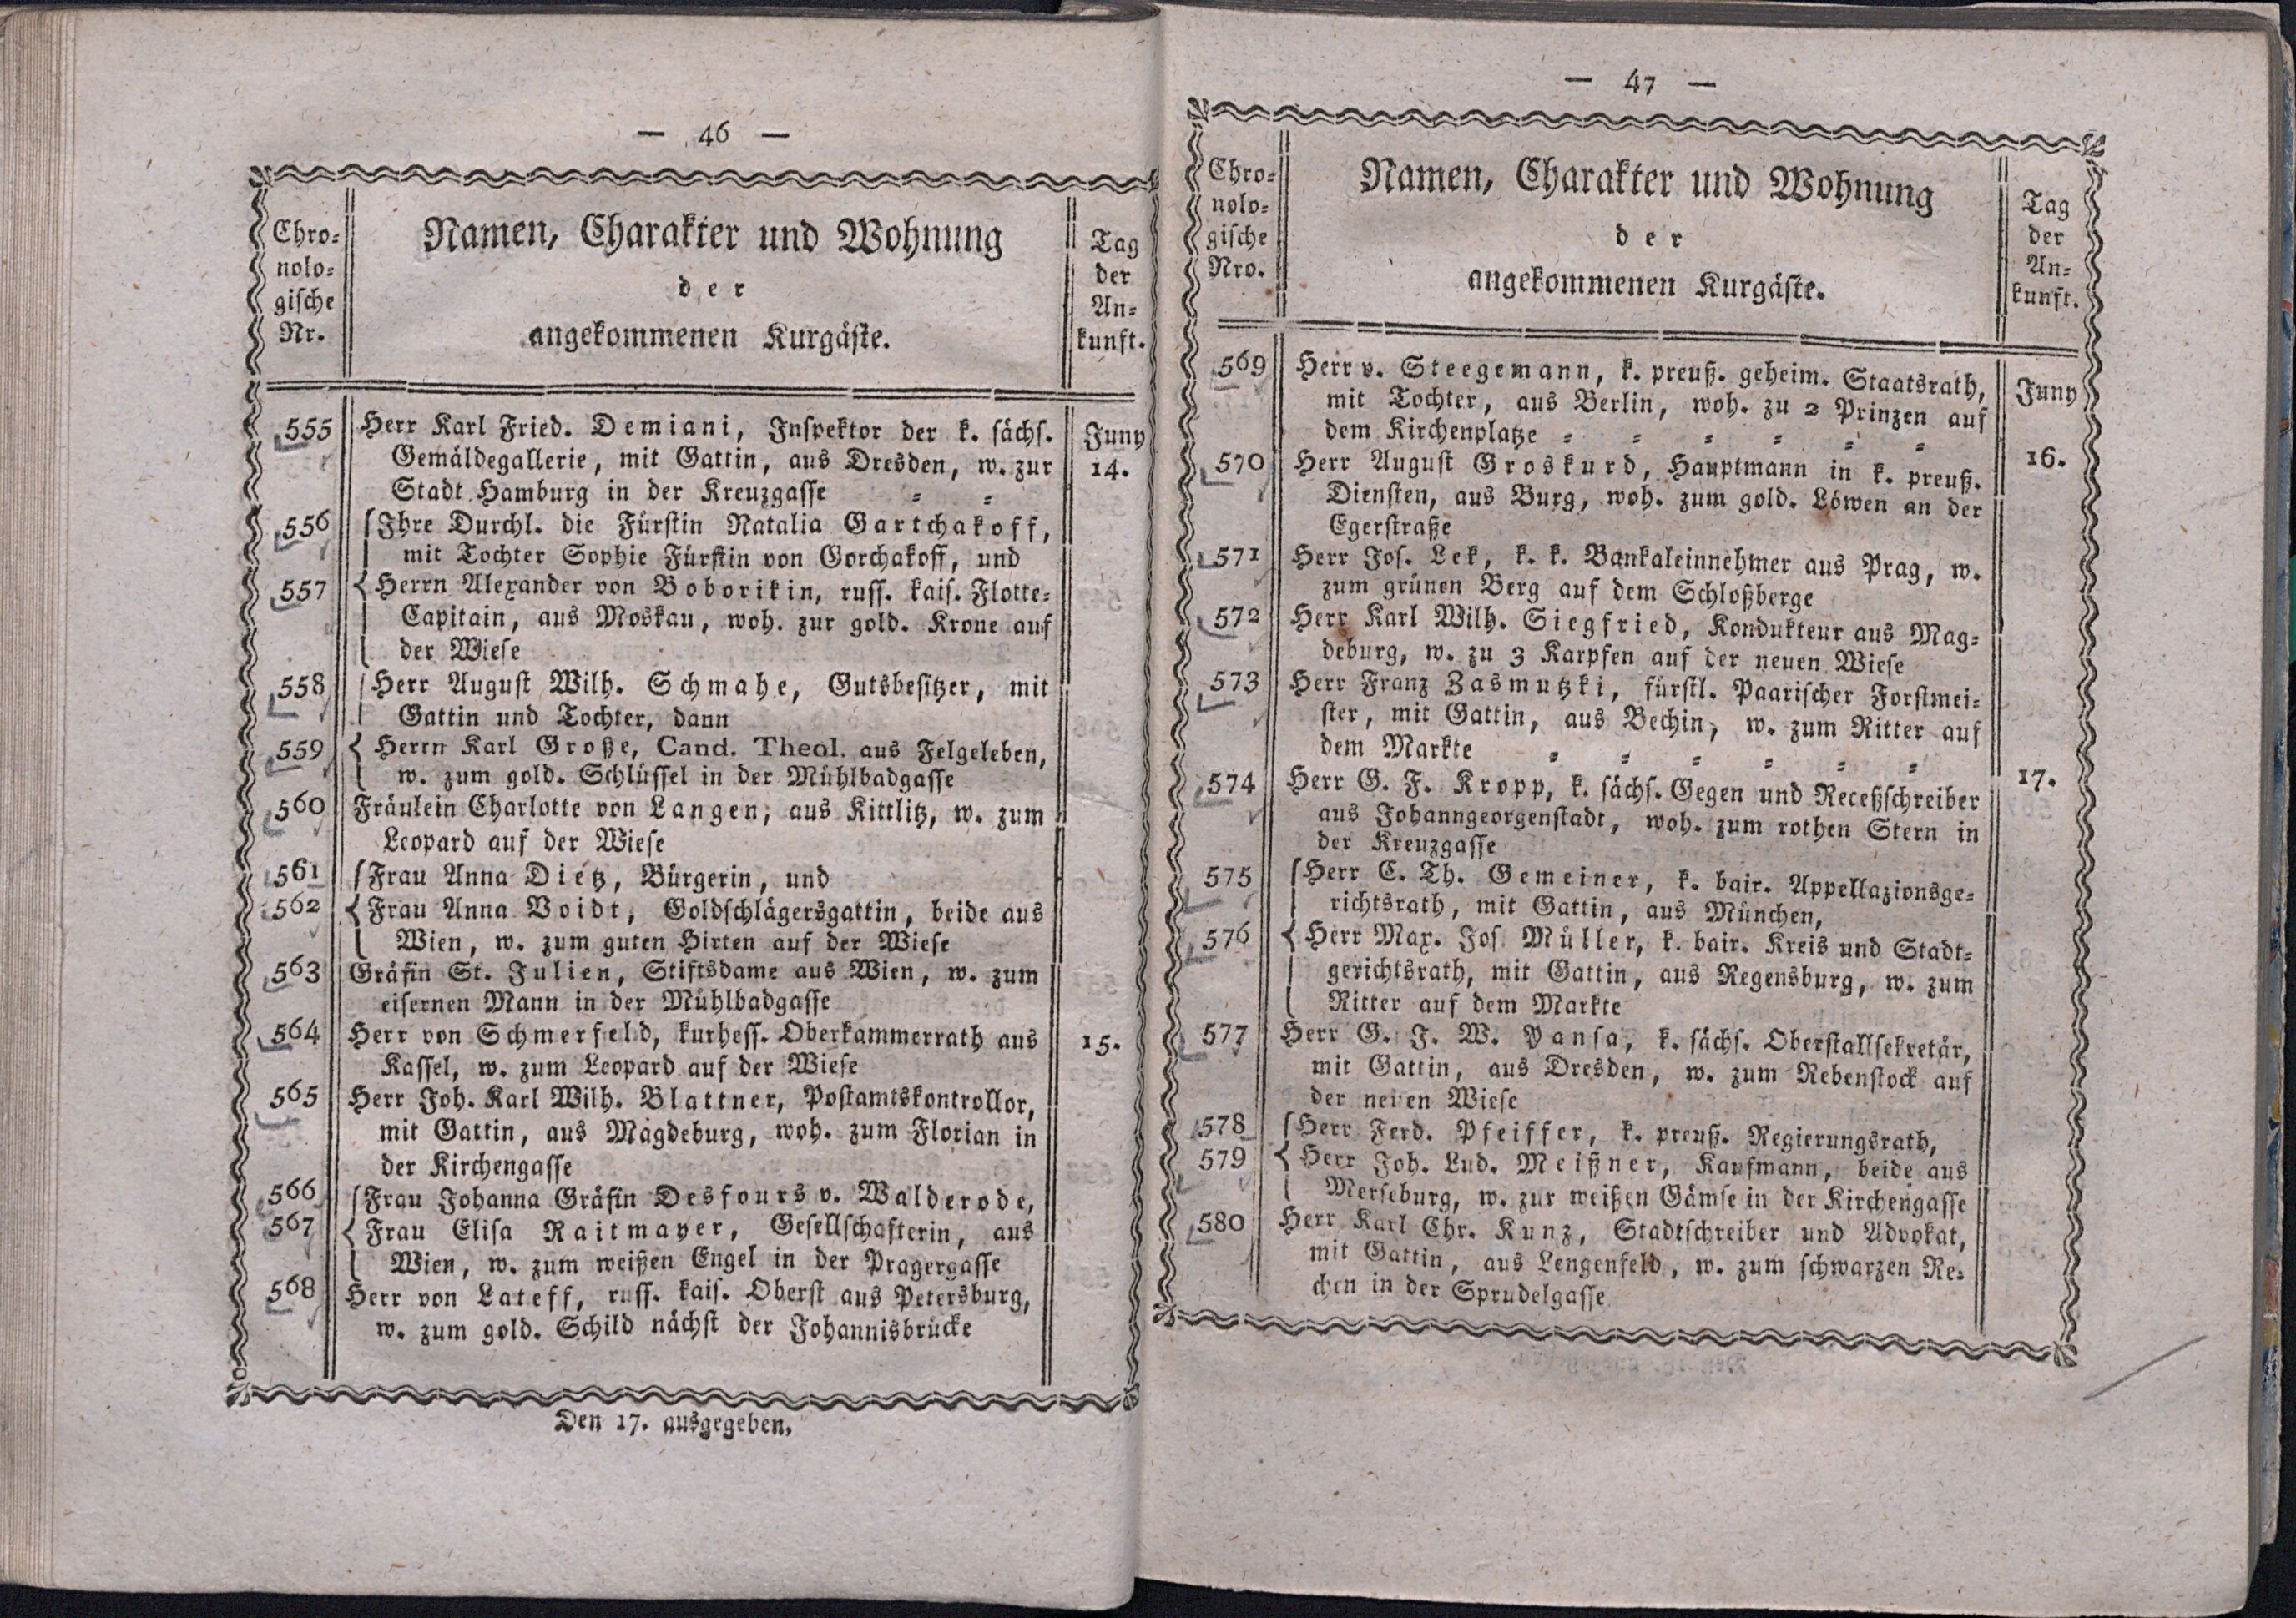 — 46 —
Chro-
nolo-
gische
Nr.
Namen, Charakter und Wohnung
der
angekommenen Kurgäste.
Tag
der
An-
kunft.
555 Herr Karl Fried. Demiani, Inspektor der k. sächs. Juny
Gemäldegallerie, mit Gattin, aus Dresden, w. zur 14.
Stadt Hamburg in der Kreuzgasse = =
556 Ihre Durchl. die Fürstin Natalia Gartchakoff,
mit Tochter Sophie Fürstin von Gorchakoff, und
557 Herrn Alexander von Boborikin, russ. kais. Flotte-
Capitain, aus Moskau, woh. zur gold. Krone auf
der Wiese
558 Herr August Wilh. Schmahe, Gutsbesitzer, mit
Gattin und Tochter, dann
559 Herrn Karl Große, Cand. Theol. aus Felgeleben,
w. zum gold. Schlüssel in der Mühlbadgasse
560 Fräulein Charlotte von Langen, aus Kittlitz, w. zum
Leopard auf der Wiese
561 Frau Anna Dietz, Bürgerin, und
562 Frau Anna Voidt, Goldschlägersgattin, beide aus
Wien, w. zum guten Hirten auf der Wiese
563 Gräfin St. Julien, Stiftsdame aus Wien, w. zum
eisernen Mann in der Mühlbadgasse
564 Herr von Schmerfeld, kurhess. Oberkammerrath aus 15.
Kassel, w. zum Leopard auf der Wiese
565 Herr Joh. Karl Wilh. Blattner, Postamtskontrollor,
mit Gattin, aus Magdeburg, woh. zum Florian in
der Kirchengasse
566 Frau Johanna Gräfin Desfours v. Walderode,
567 Frau Elisa Raitmayer, Gesellschafterin, aus
Wien, w. zum weißen Engel in der Pragergasse
568 Herr von Lateff, russ. kais. Oberst aus Petersburg,
w. zum gold. Schild nächst der Johannisbrücke
Den 17. ausgegeben.
— 47 —
Chro-
nolo-
gische
Nro.
Namen, Charakter und Wohnung
der
angekommenen Kurgäste.
Tag
der
An-
kunft.
569 Herr v. Steegemann, k. preuß. geheim. Staatsrath, Juny
mit Tochter, aus Berlin, woh. zu 2 Prinzen auf
dem Kirchenplatze = = = = = =
570 Herr August Groskurd, Hauptmann in k. preuß. 16.
Diensten, aus Burg, woh. zum gold. Löwen an der
Egerstraße
571 Herr Jos. Lek, k. k. Bankaleinnehmer aus Prag, w.
zum grünen Berg auf dem Schloßberge
572 Herr Karl Wilh. Siegfried, Kondukteur aus Mag-
deburg, w. zu 3 Karpfen auf der neuen Wiese
573 Herr Franz Zasmutzki, fürstl. Paarischer Forstmei-
ster, mit Gattin, aus Bechin, w. zum Ritter auf
dem Markte = = = = = =
574 Herr G. F. Kropp, k. sächs. Gegen und Receßschreiber 17.
aus Johanngeorgenstadt, woh. zum rothen Stern in
der Kreuzgasse
575 Herr C. Th. Gemeiner, k. bair. Appellazionsge-
richtsrath, mit Gattin, aus München,
576 Herr Max. Jos. Müller, k. bair. Kreis und Stadt-
gerichtsrath, mit Gattin, aus Regensburg, w. zum
Ritter auf dem Markte
577 Herr G. J. W. Pansa, k. sächs. Oberstallsekretär,
mit Gattin, aus Dresden, w. zum Rebenstock auf
der neuen Wiese
578 Herr Ferd. Pfeiffer, k. preuß. Regierungsrath,
579 Herr Joh. Lud. Meißner, Kaufmann, beide aus
Merseburg, w. zur weißen Gämse in der Kirchengasse
580 Herr Karl Chr. Kunz, Stadtschreiber und Advokat,
mit Gattin, aus Lengenfeld, w. zum schwarzen Re-
chen in der Sprudelgasse